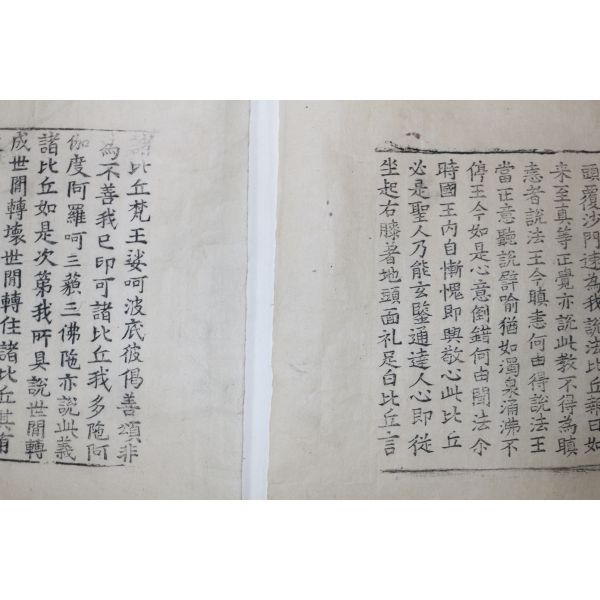 頭覆沙門速為我說法比丘報曰如
来至真等正覺亦說此教不得為瞋
恚者說法王今瞋恚何由得說法王
當正意聽說譬喻猶如濁泉涌沸不
停王今如是心意倒錯何由聞法尒
時國王內自慚愧即興敬心此比丘
必是聖人乃能玄鑒通達人心即從
坐起右膝著地頭面礼足白比丘言
諸比丘梵王娑呵波底彼偈善頌非
為不善我已印可諸比丘我多陁阿
伽度阿羅呵三藐三佛陁亦說此義
諸比丘如是次第我所具說世間轉
成世間轉壞世間轉住諸比丘其有